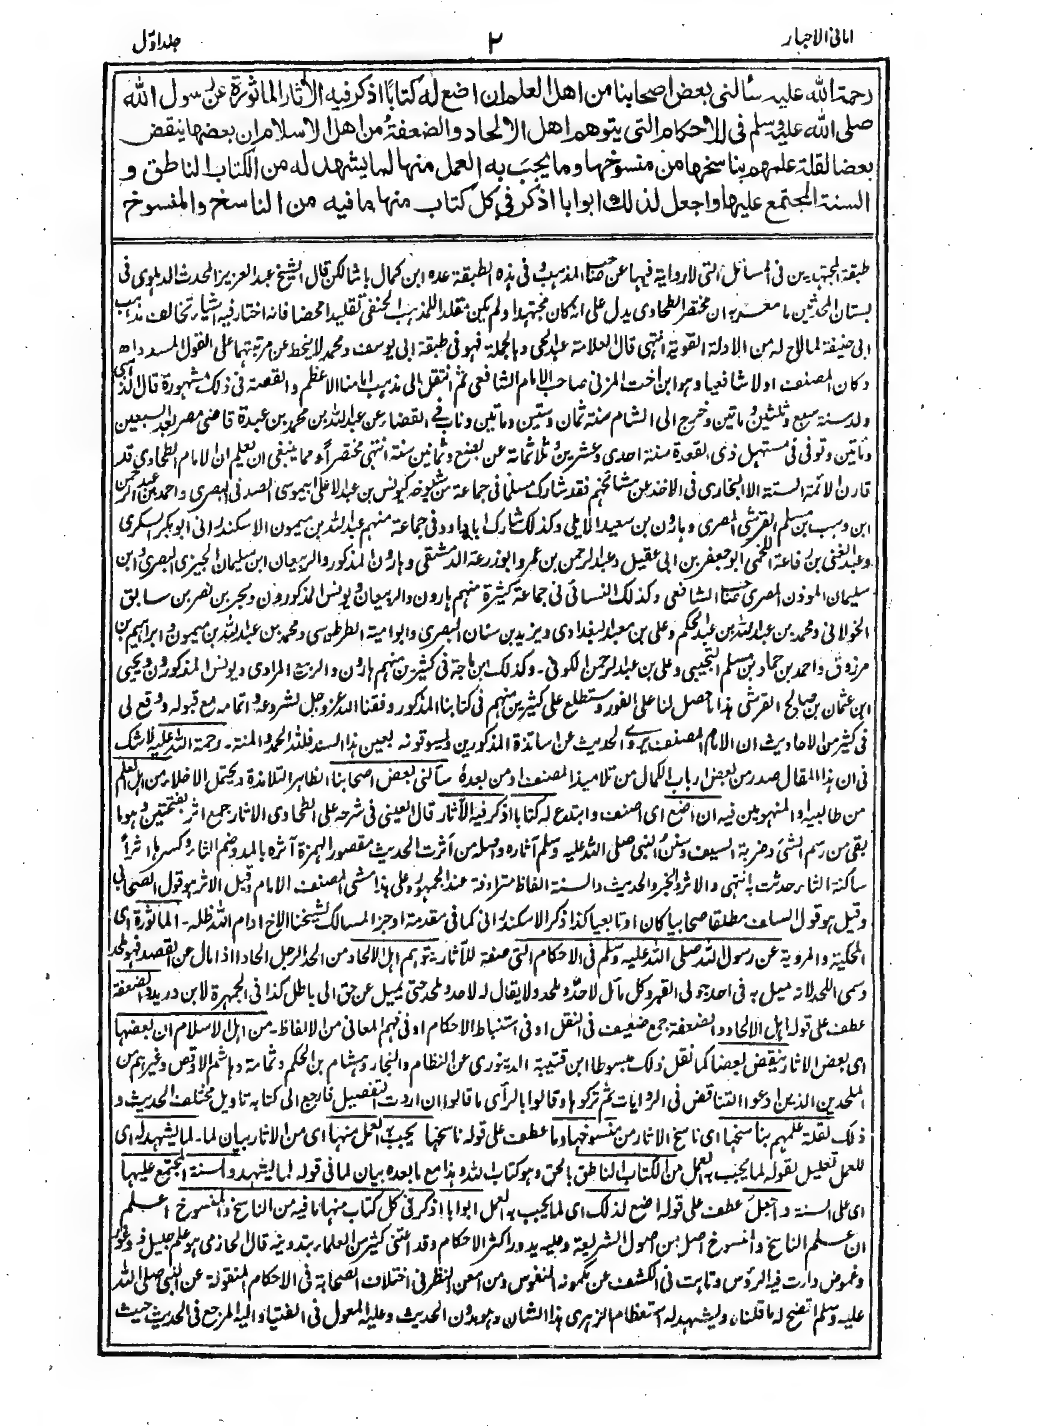 امانی الاحبار
۲
جلد اوّل
رحمة الله عليه سألنى بعض اصحابنا من اهل العلم ان اضع له كتابًا اذكر فيه الأثار الماثورة عن رسول الله
صلى الله عليه وسلم فى الاحكام التى يتوهم اهل الالحاد والضعفة من اهل الاسلام ان بعضها ينقض
بعضا لقلة علمهم بناسخها من منسوخها وما يجب به العمل منها لما يشهد له من الكتاب الناطق و
السنة المجتمع عليها واجعل لذلك ابوابا اذكر فى كل كتاب منها ما فيه من الناسخ والمنسوخ
طبقة المجتهدين فى المسائل التى لا رواية فيها عن صاحب المذهب وفى هذه الطبقة عده ابن كمال باشا لكن قال الشيخ عبد العزيز المحدث الدهلوى فى
بستان المحدثين ما معربه ان مختصر الطحاوى يدل على انه كان مجتهدا ولم يكن مقلدا للمذهب الحنفى تقليدا محضا فانه اختار فيه اشياء تخالف مذهب
ابى حنيفة لما لاح له من الادلة القوية انتهى قال العلامة عبد الحى وبالجملة فهو فى طبقة ابى يوسف ومحمد لا ينحط عن مرتبتهما على القول المسدد اھ
وكان المصنف اولا شافعيا وهو ابن اخت المزنى صاحب الامام الشافعى ثم انتقل الى مذهب امامنا الاعظم والقصة فى ذلك مشهورة قال الذهبى
ولد سنة سبع وثلثين ومأتين وخرج الى الشام سنة ثمان وستين ومأتين وناب فى القضاء عن عبد الله بن محمد بن عبدة قاضى مصر بعد السبعين
ومأتين وتوفى فى مستهل ذى القعدة سنة احدى وعشرين وثلاثمائة عن بضع وثمانين سنة انتهى مختصرًا ومما ينبغى ان يعلم ان الامام الطحاوى قد
قارن الائمة الستة الا البخارى فى الاخذ عن مشائخهم فقد شارك مسلما فى جماعة من شيوخه كيونس بن عبد الاعلى ابى موسى الصدفى البصرى واحمد بن عبد الرحمن
ابن وهب بن مسلم القرشى المصرى وهارون بن سعيد الايلى وكذلك شارك ابا داود فى جماعة منهم عبد الله بن ميمون الاسكندرانى ابو بكر السكرى
وعبد الغنى بن رفاعة اللخمى ابو جعفر بن ابى عقيل وعبد الرحمن بن عمرو ابو زرعة الدمشقى وهارون المذكور والربيعان ابن سليمان الجيزى البصرى وابن
سليمان الموذن المصرى صاحب الشافعى وكذلك النسائى فى جماعة كثيرة منهم هارون والربيعان ويونس المذكورون وبحر بن نصر بن سابق
الخولانى ومحمد بن عبد الله بن عبد الحكم وعلى بن معبد البغدادى ويزيد بن سنان البصرى وابو امية الطرطوسى ومحمد بن عبد الله بن ميمون وابراهيم بن
مرزوق واحمد بن حماد بن مسلم التجيبى وعلى بن عبد الرحمن الكوفى۔ وكذلك ابن ماجة فى كثيرين منهم هارون والربيع المرادى ويونس المذكورون ويحيى
ابن عثمان بن صالح القرشى هذا ما حصل لنا على الفور وستطلع على كثيرين منهم فى كتابنا المذكور وفقنا الله عز وجل لشروعه واتمامه مع قبوله ووقع لى
فى كثير من الاحاديث ان الامام المصنف يروى الحديث عن اساتذة المذكورين ويسوقونه بعين هذا السند فلله الحمد والمنة۔ رحمة الله عليه لا شك
فى ان هذا المقال صدر من بعض ارباب الكمال من تلاميذ المصنف او من بعده سألنى بعض اصحابنا الظاهر التلامذة ويحتمل الاخلاء من اهل العلم
من طالبيه او المنهومين فيه ان اضع اى اصنف وابتدع له كتابا اذكر فيه الآثار قال العينى فى شرحه على الطحاوى الاثار جمع اثر بفتحتين وهو ما
بقى من رسم الشئ وضربة السيف وسنن النبى صلى الله عليه وسلم آثاره واصله من أثرت الحديث مقصور الهمزة آثره بالمد وضم الثاء وكسرها اثرًا
ساكنة الثاء حدثت به انتهى والاثر والخبر والحديث والسنة الفاظ مترادفة عند الجمهور وعلى هذا مشى المصنف الامام وقيل الاثر هو قول الصحابى
وقيل هو قول السلف مطلقا صحابيا كان او تابعيا كذا ذكره الاسكندرانى كما فى مقدمة اوجز المسالك لشيخنا الاخ ادام الله ظله۔ الماثورة اى
المحكية والمروية عن رسول الله صلى الله عليه وسلم فى الاحكام التى صفة للآثار يتوهم اهل الالحاد من الحد الرجل الحادا اذا مال عن القصد فهو ملحد
وسمى اللحد لانه ميل به فى احد جولى القبر وكل مائل لاحد وملحد ولا يقال له لاحد وملحد حتى يميل عن حق الى باطل كذا فى الجمهرة لابن دريد والضعفة
عطف على قوله اهل الالحاد والضعفة جمع ضعيف فى النقل او فى استنباط الاحكام او فى فهم المعانى من الالفاظ۔ من اهل الاسلام ان بعضها
اى بعض الاثار ينقض بعضا كما نقل ذلك مبسوطا ابن قتيبة الدينورى عن النظام والنجار وهشام بن الحكم وثمامة وهاشم الاوقص وغيرهم من
الملحدين الذين ادعوا التناقض فى الروايات ثم تركوها وقالوا بالرأى ما قالوا ان اردت التفصيل فارجع الى كتابه تاويل مختلف الحديث و
ذلك لقلة علمهم بناسخها اى ناسخ الاثار من منسوخها وما عطف على قوله ناسخها يجب به العمل منها اى من الاثار بيان لما۔ لما يشهد له اى
للعمل تعليل لقوله لما يجب به العمل من الكتاب الناطق بالحق وهو كتاب الله وهذا مع ما بعده بيان لما فى قوله لما يشهد والسنة المجتمع عليها
اى على السنة واجعل عطف على قوله اضع لذلك اى لما يجب به العمل ابوابا اذكر فى كل كتاب منها ما فيه من الناسخ والمنسوخ اعلم
ان علم الناسخ والمنسوخ اصل من اصول الشريعة وعليه يدور اكثر الاحكام وقد اعتنى كثير من العلماء بتدوينه قال الحازمى هو علم جليل ذو غور
وغموض دارت فيه الرؤس وتاهت فى الكشف عن مكنونه النفوس ومن امعن النظر فى اختلاف الصحابة فى الاحكام المنقولة عن النبى صلى الله
عليه وسلم اتضح له ما قلناه وليشهد له استعظام الزهرى هذا الشان وهو مدون الحديث وعليه المعول فى الفتيا واليه المرجع فى الحديث حيث